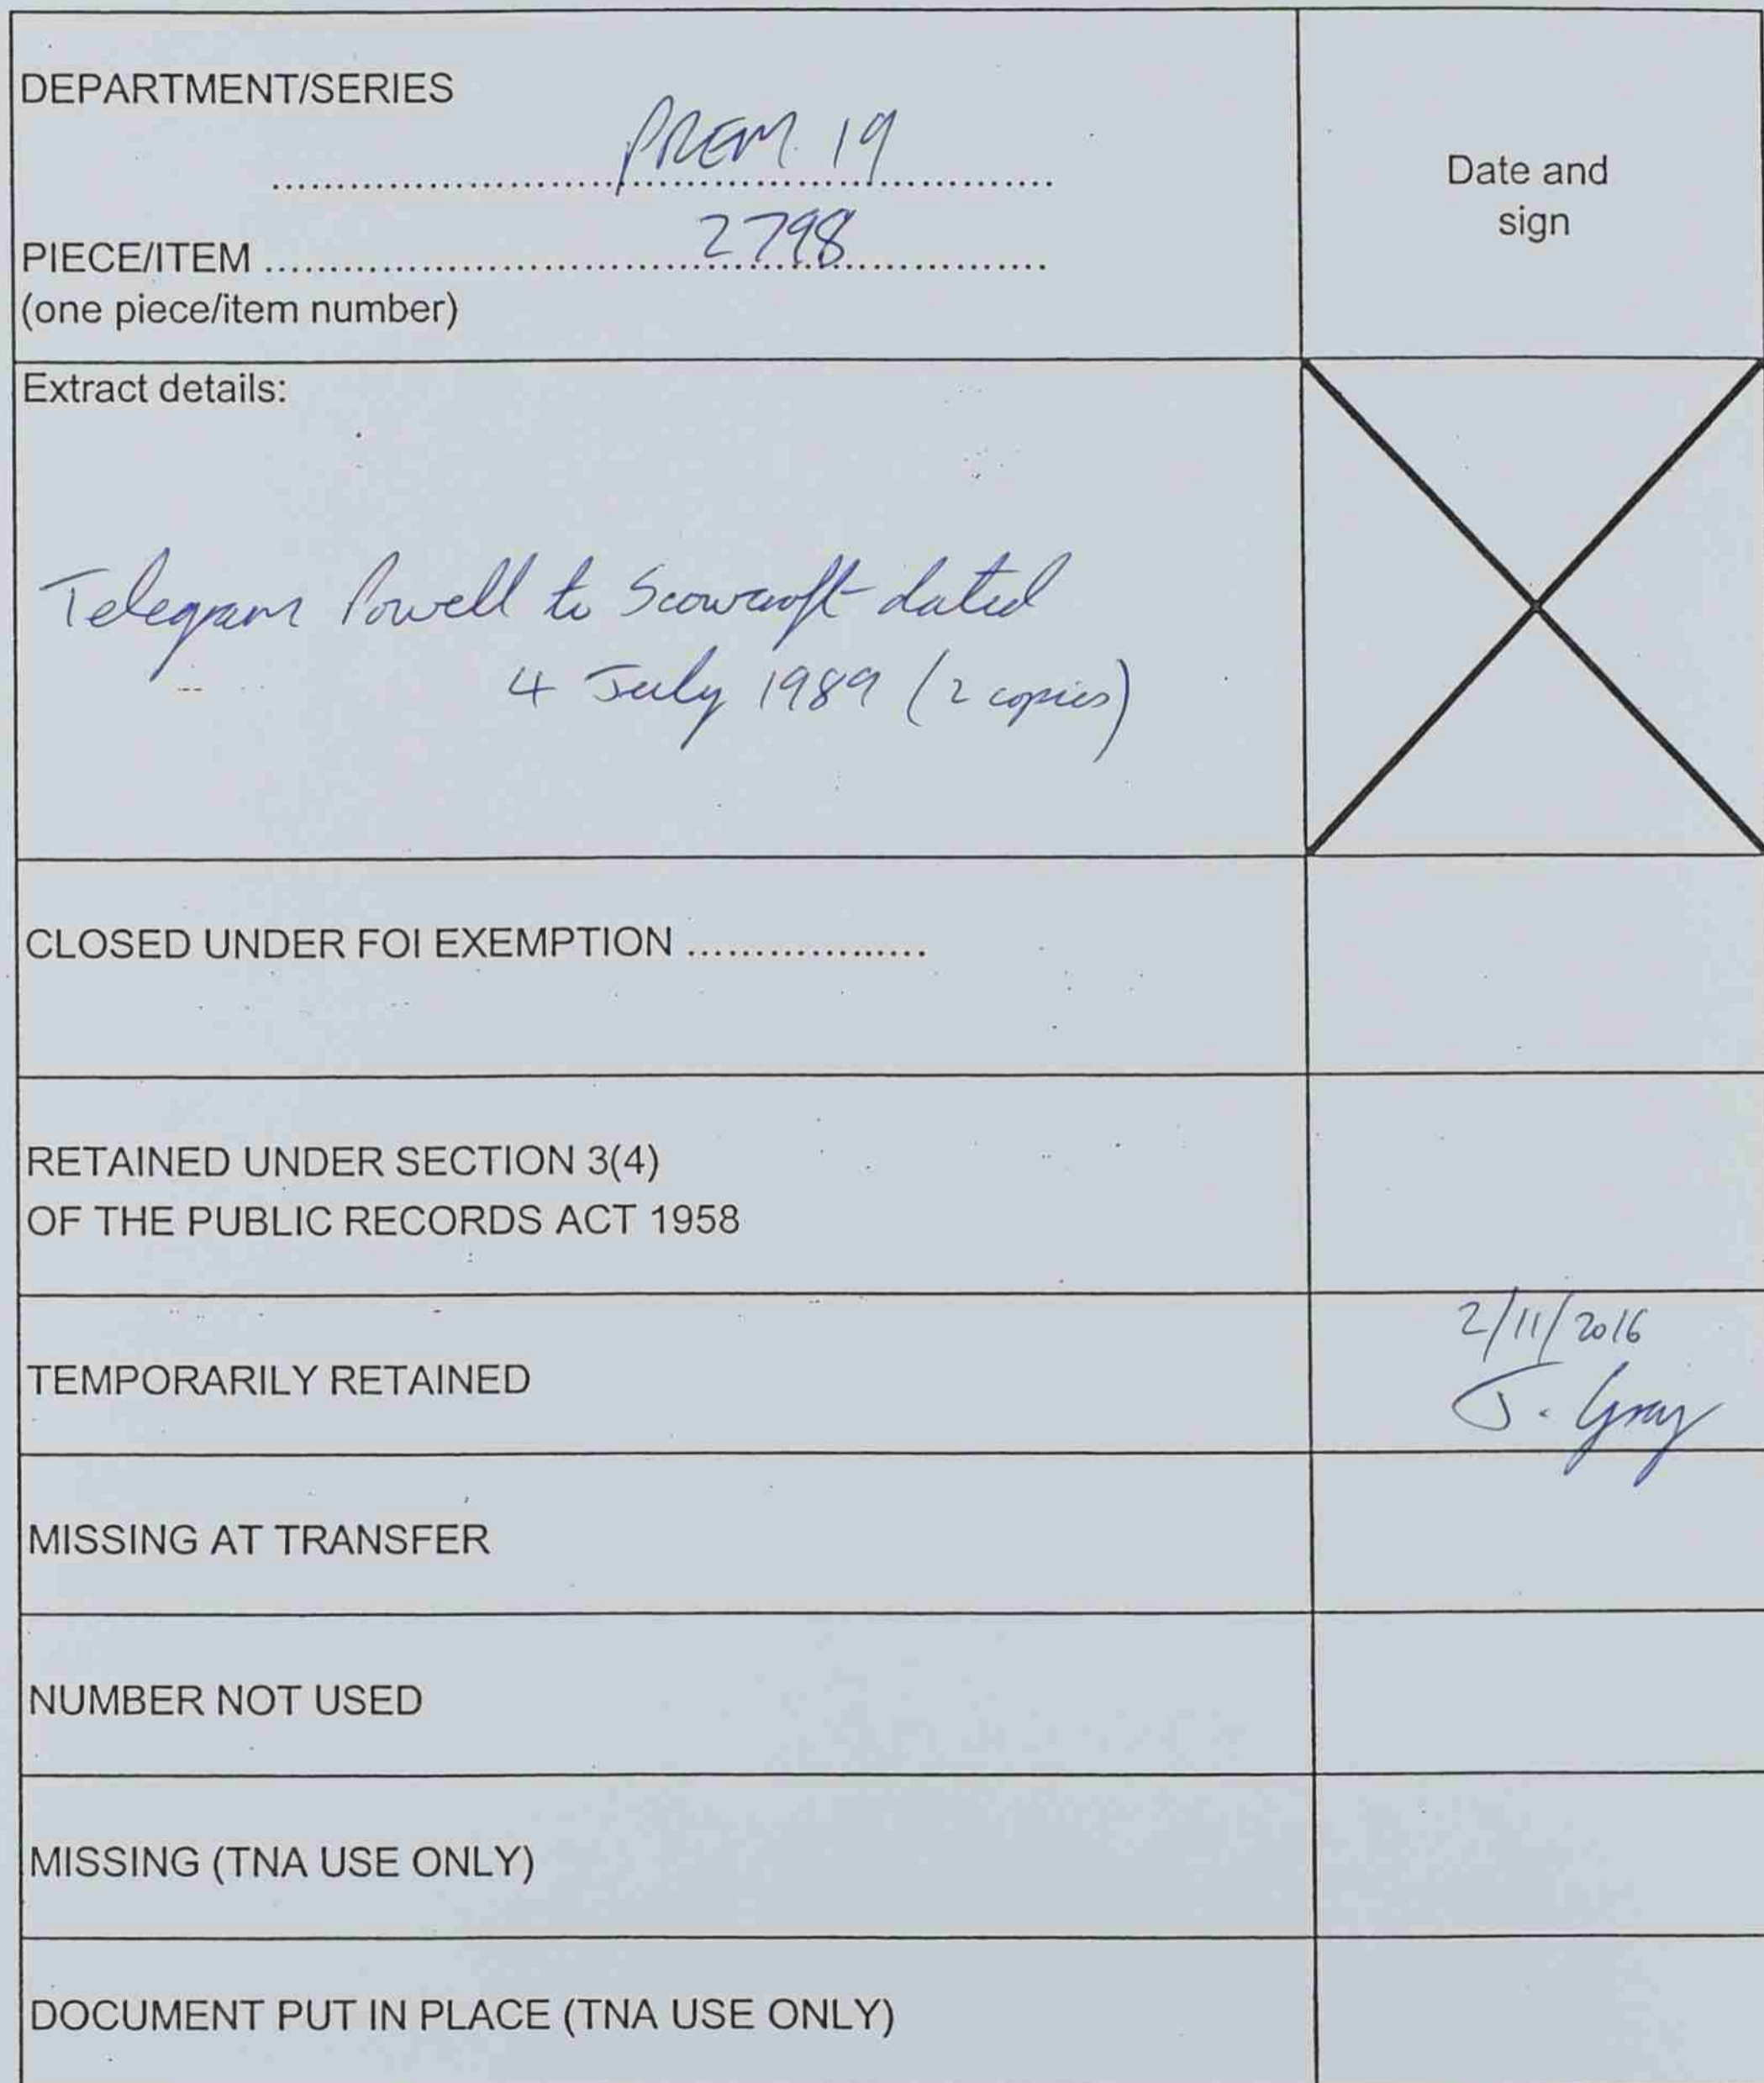 DEPARTMENT/SERIES
PREM 19
Date and
sign
PIECE/ITEM ........................ 2798 ........................
(one piece/item number)
Extract details:
Telegram Powell to Scowcroft dated
4 July 1989 (2 copies)
CLOSED UNDER FOI EXEMPTION ..................
RETAINED UNDER SECTION 3(4)
OF THE PUBLIC RECORDS ACT 1958
TEMPORARILY RETAINED
2/11/2016
J. Gray
MISSING AT TRANSFER
NUMBER NOT USED
MISSING (TNA USE ONLY)
DOCUMENT PUT IN PLACE (TNA USE ONLY)